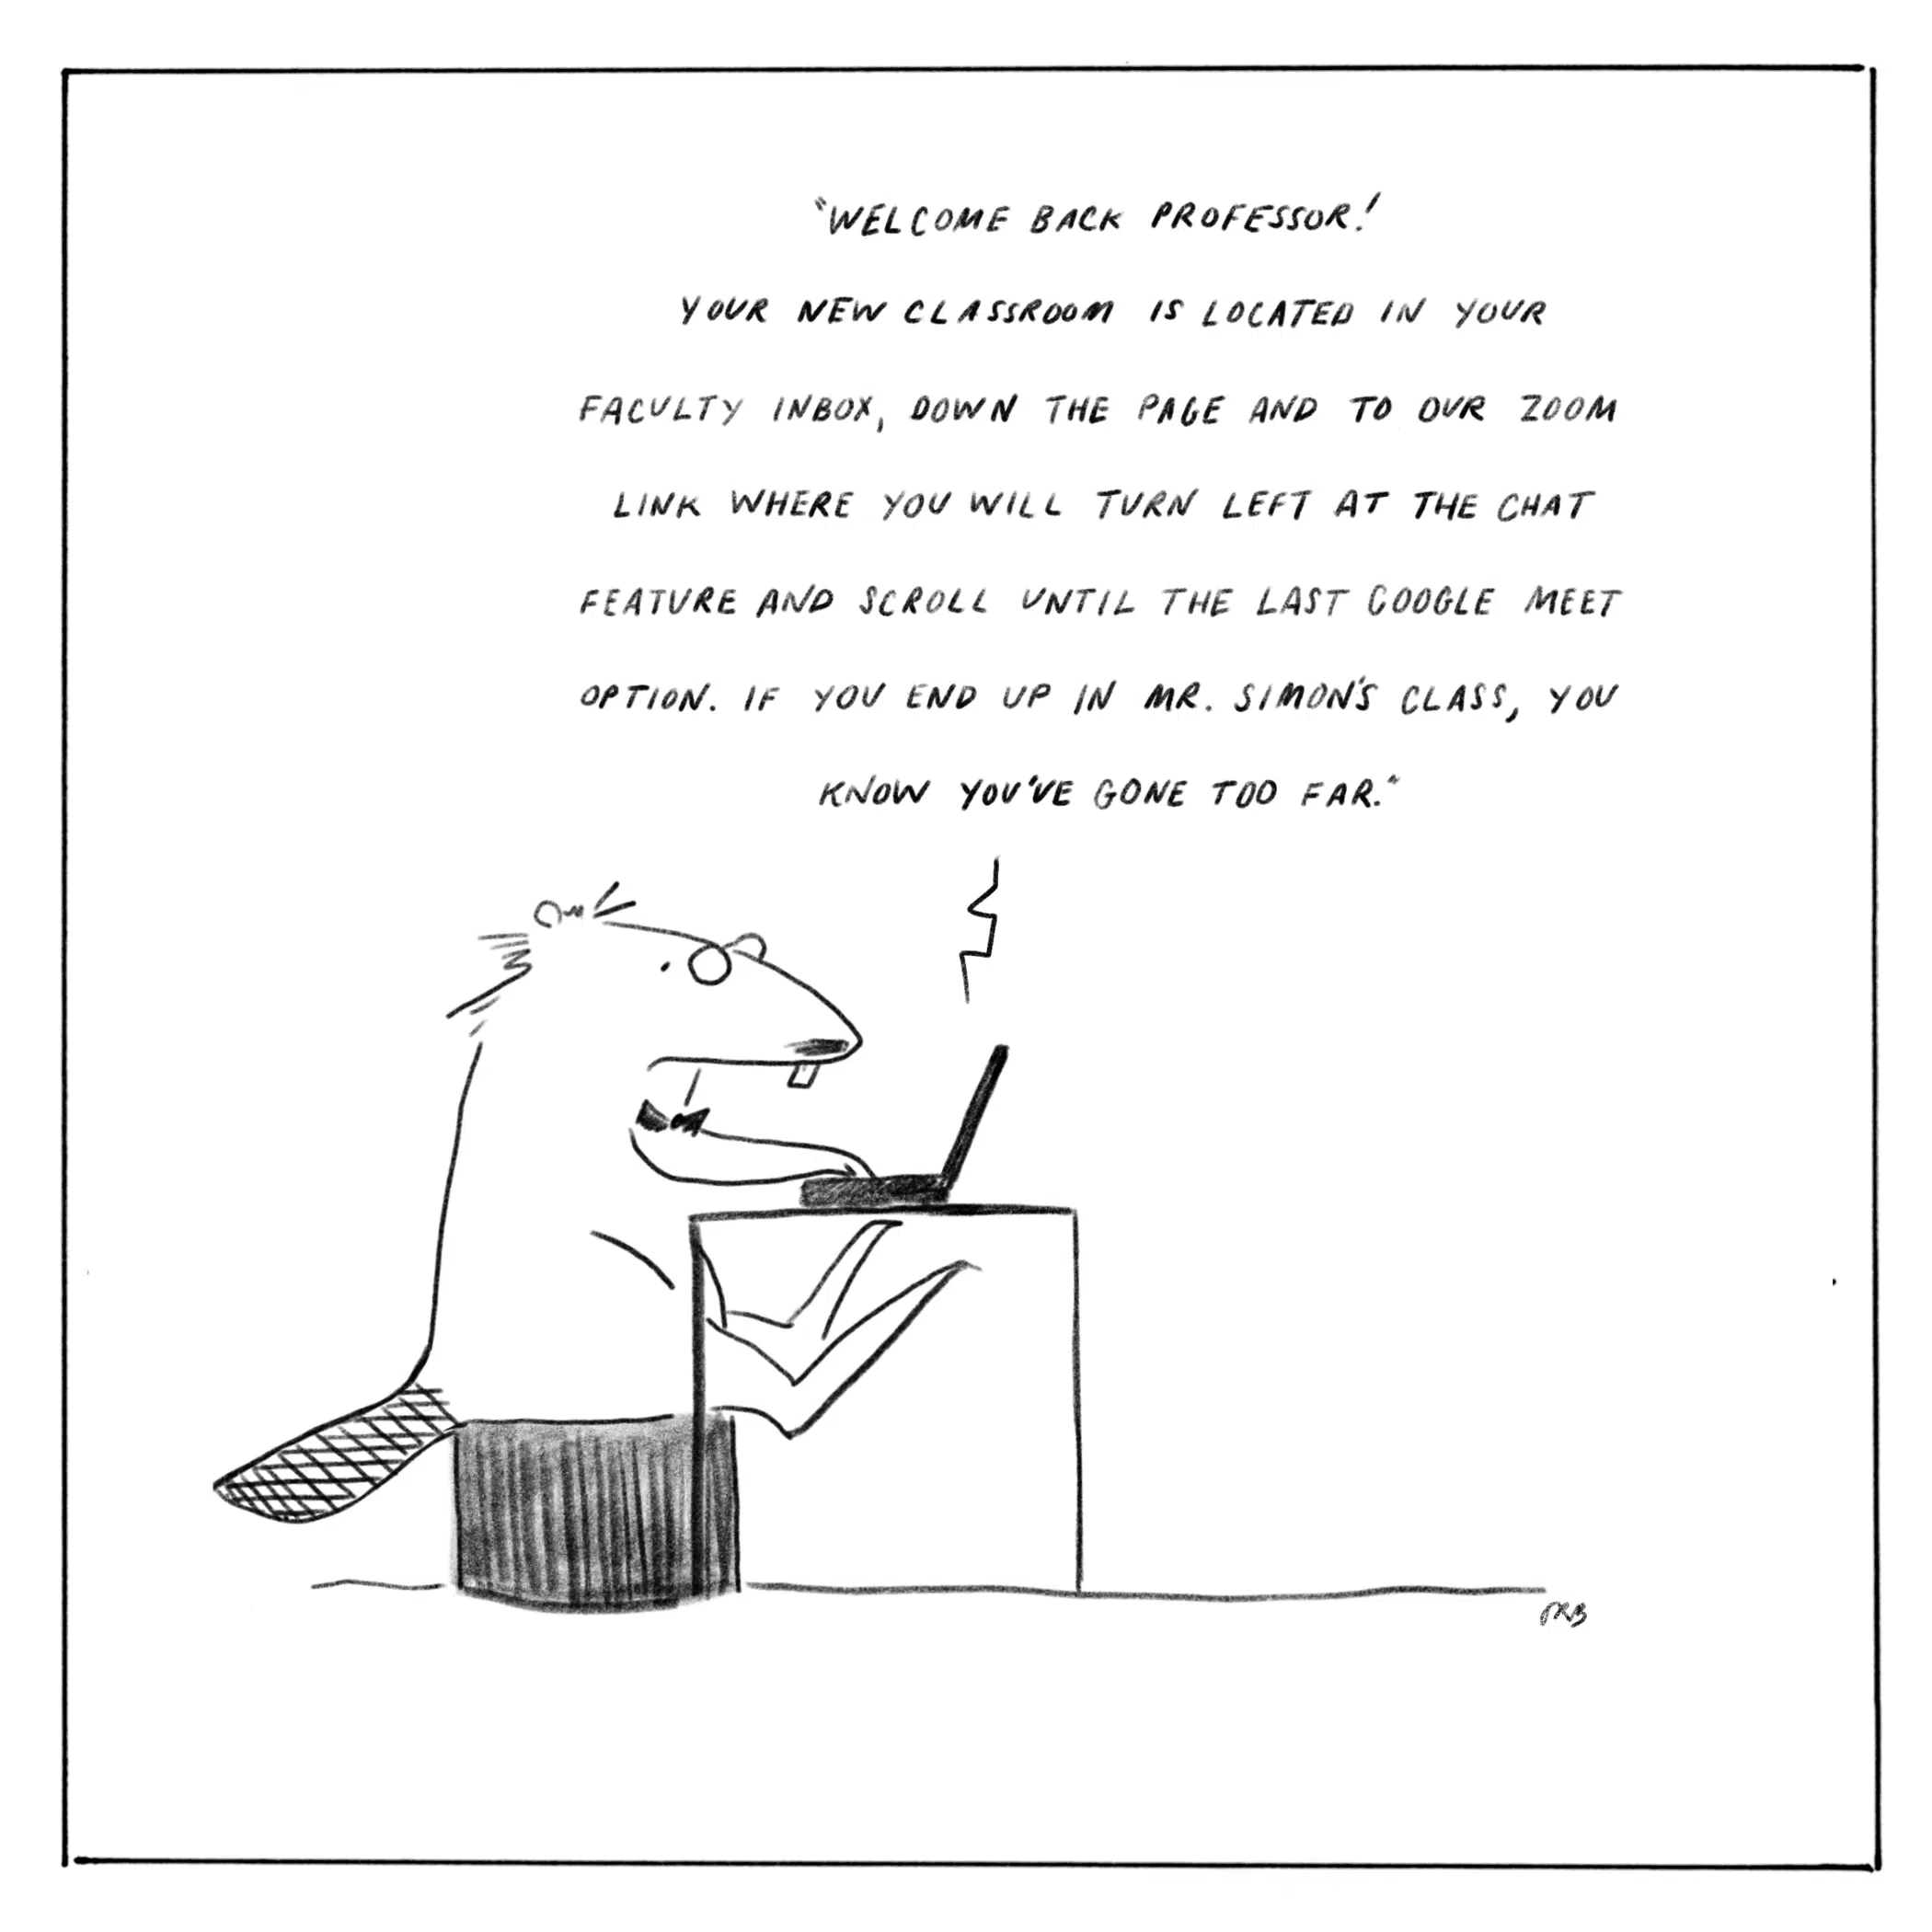 "WELCOME BACK PROFESSOR!
YOUR NEW CLASSROOM IS LOCATED IN YOUR
FACULTY INBOX, DOWN THE PAGE AND TO OUR ZOOM
LINK WHERE YOU WILL TURN LEFT AT THE CHAT
FEATURE AND SCROLL UNTIL THE LAST GOOGLE MEET
OPTION. IF YOU END UP IN MR. SIMON'S CLASS, YOU
KNOW YOU'VE GONE TOO FAR."